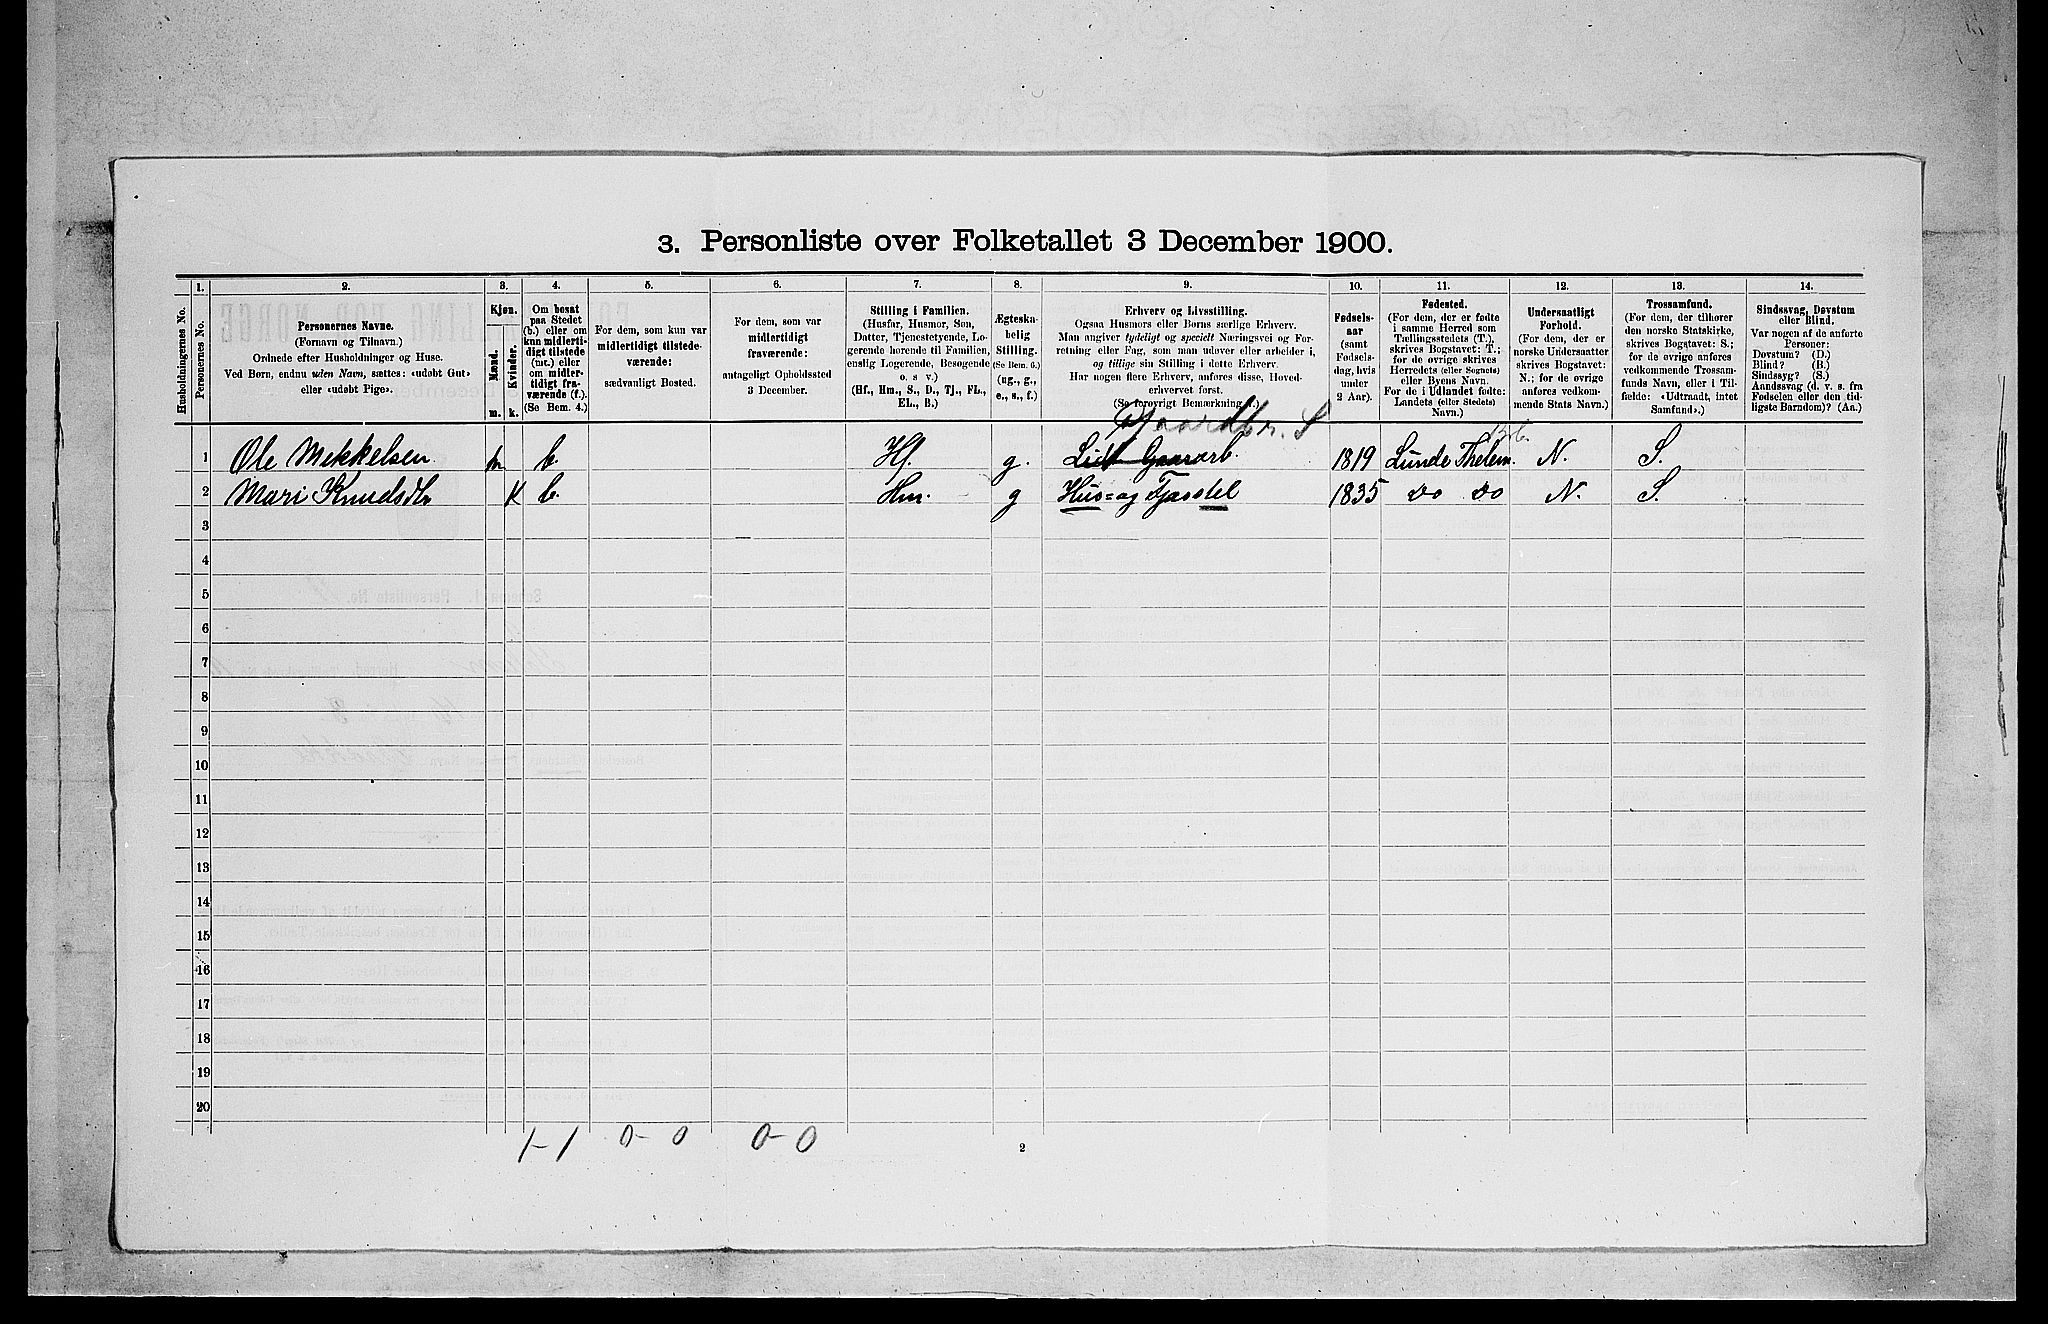 3. Personliste over Folketallet 3 December 1900.
Husholdningernes No.
1.
Personernes No.
2.
Personernes Navne.
(Fornavn og Tilnavn.)
Ordnede efter Husholdninger og Huse.
Ved Børn, endnu uden Navn, sættes: «udøbt Gut»
eller «udøbt Pige».
3.
Kjøn.
Mænd.
Kvinder.
m.
k.
4.
Om bosat
paa Stedet
(b.) eller om
kun midlerti-
digt tilstede
(mt.) eller
om midler-
tidigt fra-
værende (f.).
(Se Bem. 4.)
5.
For dem, som kun var
midlertidigt tilstede-
værende:
sædvanligt Bosted.
6.
For dem, som var
midlertidigt
fraværende:
antageligt Opholdssted
3 December.
7.
Stilling i Familien.
(Husfar, Husmor, Søn,
Datter, Tjenestetyende, Lo-
gerende hørende til Familien,
enslig Logerende, Besøgende
o. s. v.)
(Hf., Hm., S., D., Tj., FL.,
EL., B.)
8.
Ægteska-
belig
Stilling.
(Se Bem. 6.)
(ug., g.,
e., s., f.)
9.
Erhverv og Livsstilling.
Ogsaa Husmors eller Børns særlige Erhverv.
Man angiver tydeligt og specielt Næringsvei og For-
retning eller Fag, som man udøver eller arbeider i,
og tillige sin Stilling i dette Erhverv.
Har nogen flere Erhverv, anføres disse, Hoved-
erhvervet først.
(Se forøvrigt Bemærkning 7.)
10.
Fødsels-
aar
(samt
Fødsels-
dag, hvis
under
2 Aar).
11.
Fødested.
(For dem, der er fødte
i samme Herred som
Tællingsstedets (T.),
skrives Bogstavet: T.;
for de øvrige skrives
Herredets (eller Sognets)
eller Byens Navn.
For de i Udlandet fødte:
Landets (eller Stedets)
Navn.)
12.
Undersaatligt
Forhold.
(For dem, der er
norske Undersaatter
skrives Bogstavet:
N.; for de øvrige
anføres vedkom-
mende Stats Navn.)
13.
Trossamfund.
(For dem, der tilhører
den norske Statskirke,
skrives Bogstavet: S.;
for de øvrige anføres
vedkommende Trossam-
funds Navn, eller i Til-
fælde: «Udtraadt, intet
Samfund».)
14.
Sindssvag, Døvstum
eller Blind.
Var nogen af de anførte
Personer:
Døvstum? (D.)
Blind? (B.)
Sindssyg? (S.)
Aandssvag (d. v. s. fra
Fødselen eller den tid-
ligste Barndom)? (Aa.)
Gaardbr. S
1 Ole Mekkelsen m b. Hf. g. Gaarb. 1819 Lunde Thelem. N. S.
2 Mari Knudsdtr K b. Hm. g Hus= og Fjøsstel 1835 Do Do N. S.
3
4
5
6
7
8
9
10
11
12
13
14
15
16
17
18
19
20
1-1 0-0 0-0
2